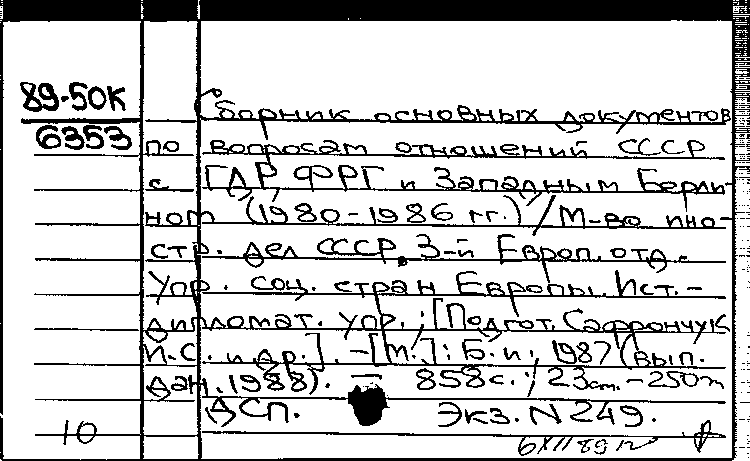 89-50К
6353
Сборник основных документов
по вопросам отношений СССР
с ГДР, ФРГ и Западным Берли-
ном (1980-1986 гг.) / М-во ино-
стр. дел СССР, 3-й Европ. отд.
Упр. соц. стран Европы. Ист.-
дипломат. упр.; [Подгот. Сафрончук
И.С. и др.]. - [М.]: Б. и., 1987 (вып.
дан. 1988). - 858 с.; 23 см. - 250
ДСП. Экз. N 249.
10
6 XII 89